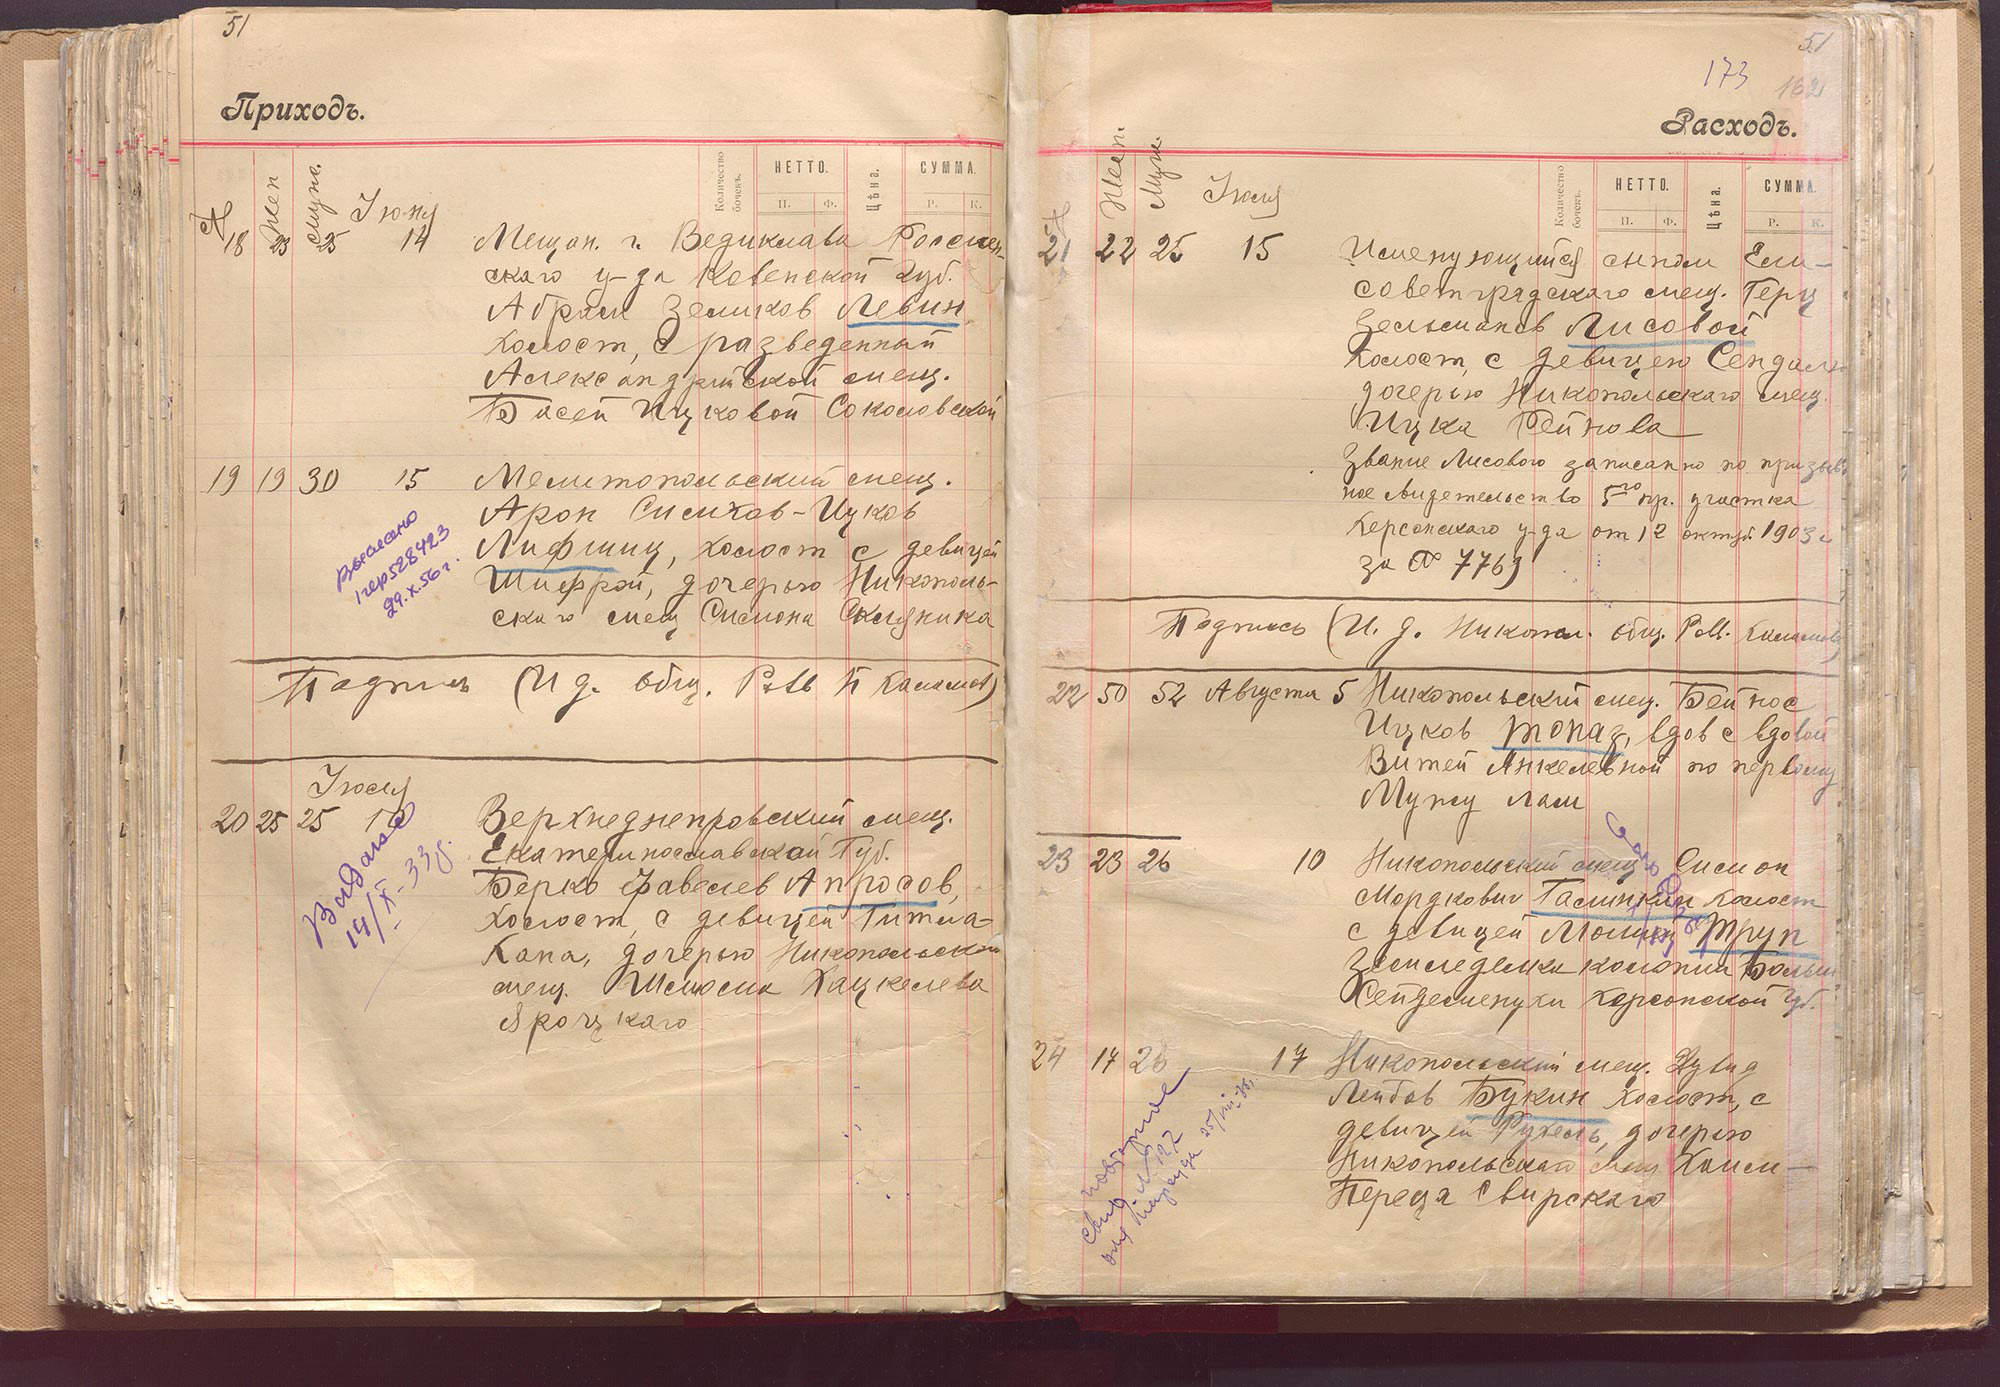 51
Приходъ.
Количество бочекъ.
НЕТТО.
П. Ф.
Цѣна.
СУММА.
Р. К.
№ Жен Мущ. Июня
18 23 25 14 Мещан. г. Ведиклава Россиен-
скаго у-да Ковенской Губ.
Абрам Зеликов Левин,
холост, с разведенный
Александрийской мещ.
Басей Ицковой Соколовской
19 19 30 15 Мелитопольский мещ.
Арон Симхов-Ицков
Лифшиц, холост с девицей
Шифрой, дочерью Никополь-
скаго мещ Симона Склярика
Выслано
528423
29.X.56 г.
Подпись (И д. общ. Рав. П Каламов)
Июля
20 25 25 Верхнеднепровский мещ.
Екатеринославской Губ.
Берко Фавелев Апросов,
холост, с девицей Гитла-
Хана, дочерью Никопольской
мещ. Шлиома Хацкелева
Яроцкаго
Выдано
14/X-33 г.
51
173
162
Расходъ.
Количество бочекъ.
НЕТТО.
П. Ф.
Цѣна.
СУММА.
Р. К.
№ Жен. Мущ. Июля
21 22 25 15 Именующийся сыном Ели-
советградскаго мещ. Герц
Зельманов Лисовой
холост, с девицею
дочерью Никопольскаго мещ.
Ицка Рейнова
Звание Лисового записанно по призыв-
ное свидетельство 5го пр. участка
Херсонскаго у-да от 12 октяб. 1903 г
за № 7769
Подпись (И. д. Никопол. общ. Рав. Каламов)
22 50 52 Августа 5 Никопольский мещ. Бейнос
Ицков Топаз, вдов с вдовой
Витей Янкелевной по первому
Мужу Лам
23 23 26 10 Никопольский мещ Симон
Мордкович Галинкин холост
с девицей Трул
Земледелка колонии Больш
Сейдеменухи Херсонской Губ.
24 17 26 17 Никопольский мещ. Дувид
Лейбов Букин холост, с
девицей Рухель, дочерью
Никопольскаго мещ Хаим-
Переца Свирскаго
повторное
свид. № 127
25/VIII-36 г.